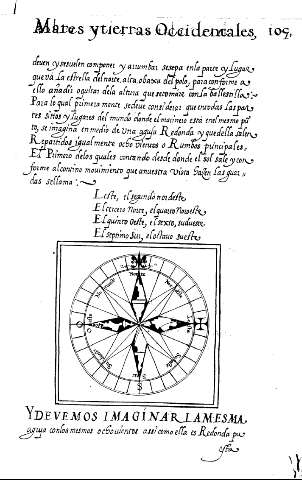 Mares y tierras Occidentales, 109.
deuen y se suelen componer y arumbar se sepa en la parte y lugar
que va la estrella del norte, alta o baxa del polo, para conforme a
ello anadir o quitar de la altura que se tomare con la ballestilla
Para lo qual primeramente se deue considerar que en todas las par
tes sitios y lugares del mundo donde el marinero esta en el mesmo pū
to, se imagina en medio de una aguja Redonda y que della salen
Repartidos igualmente ocho vientos o Rumbos principales.
El Primero de los quales contando desde donde el sol sale y con
forme al contino movimiento que a nuestra vista hazen las guar
das se llama
Leste, el segundo nordeste
El tercero Norte, el quarto Noroeste
El quinto Oeste, el sexto, sudueste
El septimo Sur, el octavo sueste
Norte
Y DEVEMOS IMAGINAR LA MESMA
aguja con los mesmos ocho vientos assi como ella es Redonda pu
esta